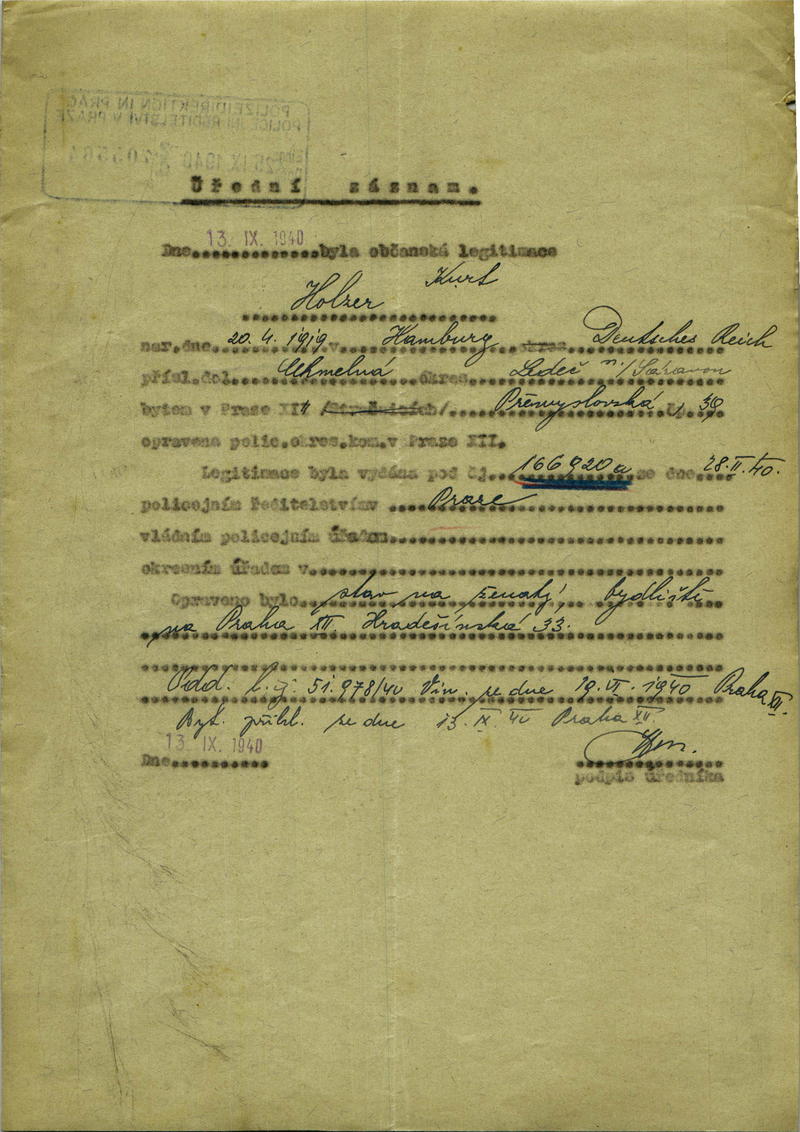 POLIZEIDIREKTION IN PRAG
POLICEJNÍ ŘEDITELSTVÍ V PRAZE
IX 1940
Úřední záznam.
13. IX. 1940
Dne..............byla občanská legitimace
Holzer Kurt
nar.dne 20.4.1919 v Hamburg okres Deutsches Reich
přísl.do Chmelná okres Ledeč n/Sázavou
bytem v Praze XII Přemyslovská č. 39
opravena polic.okres.kom.v Praze XII.
Legitimace byla vydána pod čj. 166920a ze dne 28.II.40.
policejním ředitelstvím v Praze
vládním policejním úřadem
okresním úřadem v
Opraveno bylo stav na ženatý, bydliště
na Praha XII Hradešínská 33.
Odd. l. č. 51.978/40 Vin. ze dne 19.VI.1940 Praha XII.
Byt. přihl. ze dne 13.IX.40 Praha XII
13. IX. 1940
Dne
podpis úředníka